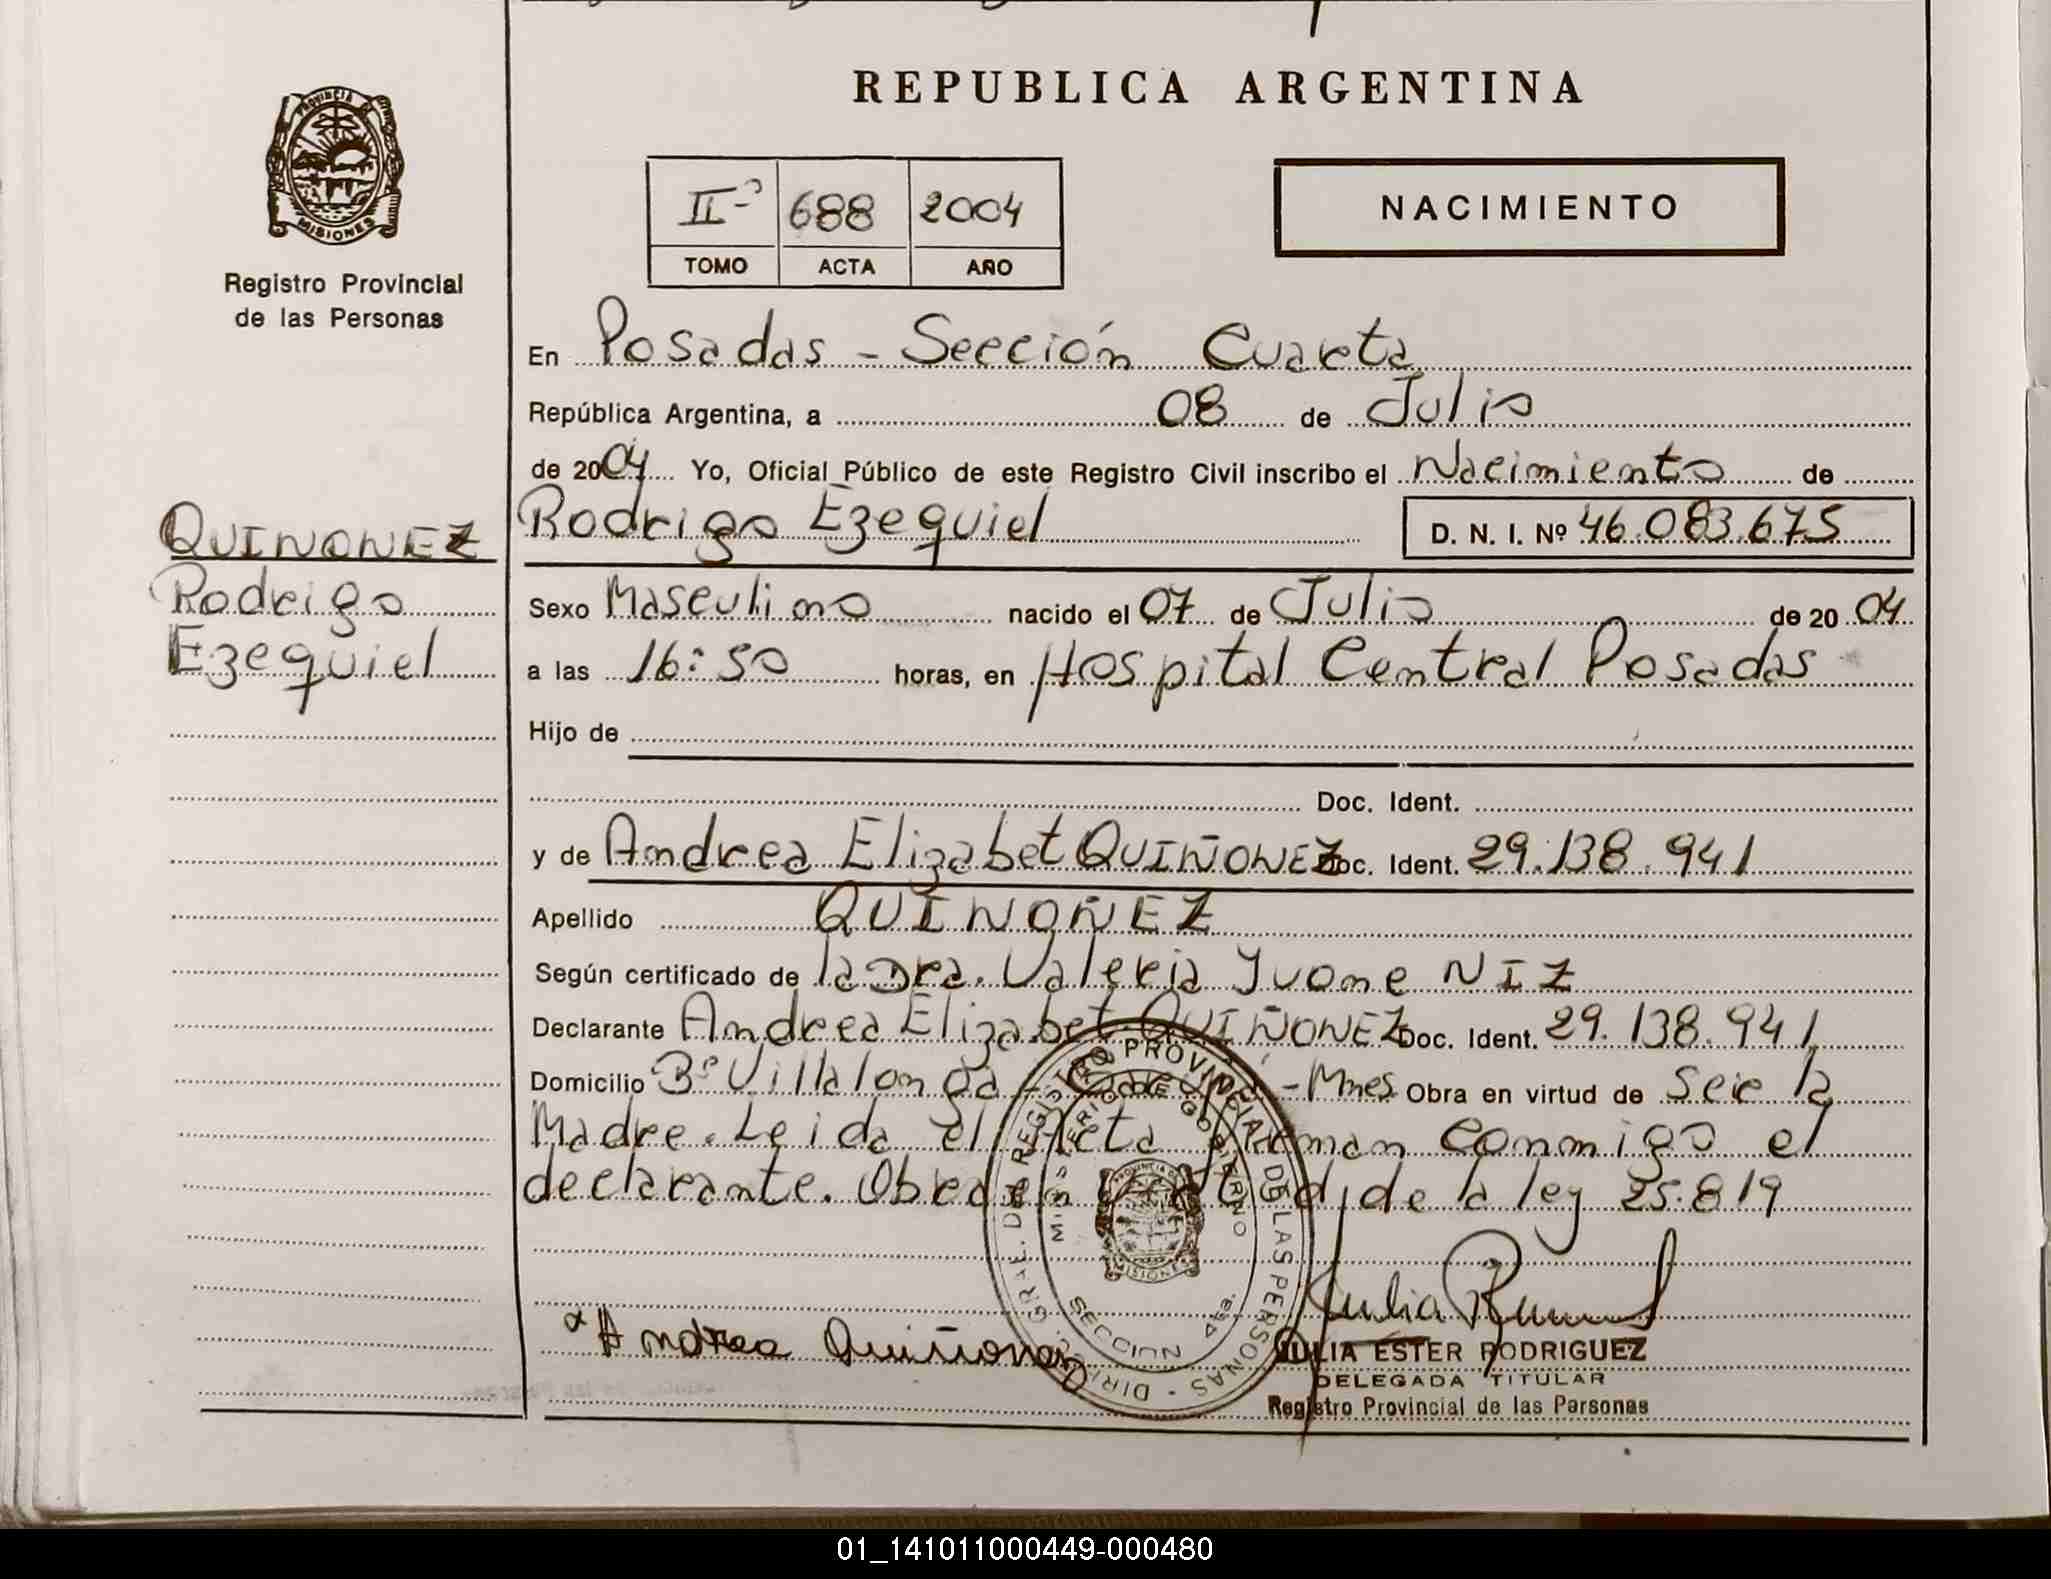 REPUBLICA ARGENTINA
PROVINCIA DE
MISIONES
Registro Provincial
de las Personas
II-º 688 2004
TOMO ACTA AÑO
NACIMIENTO
En Posadas - Sección Cuarta
República Argentina, a 08 de Julio
de 2004 Yo, Oficial Público de este Registro Civil inscribo el Nacimiento de
QUINONEZ
Rodrigo
Ezequiel
Rodrigo Ezequiel D. N. I. Nº 46.083.675
Sexo Masculino nacido el 07 de Julio de 2004
a las 16:50 horas, en Hospital Central Posadas
Hijo de
Doc. Ident.
y de Andrea Elizabet QUIÑONEZ Doc. Ident. 29.138.941
Apellido QUINOÑEZ
Según certificado de la Dra. Valeria Ivone NIZ
Declarante Andrea Elizabet QUIÑONEZ Doc. Ident. 29.138.941
Domicilio Bº Villalonga - - Mnes Obra en virtud de Ser la
Madre. Leida el Acta Firman conmigo el
declarante. Obra en de la ley 25.819
DIRIC. GRAL. DE REGISTRO PROVINCIAL DE LAS PERSONAS
MINISTERIO DE GOBIERNO
PROVINCIA DE
MISIONES
SECCION 4ta.
Andrea Quiñonez
JULIA ESTER RODRIGUEZ
DELEGADA TITULAR
Registro Provincial de las Personas
01_141011000449-000480